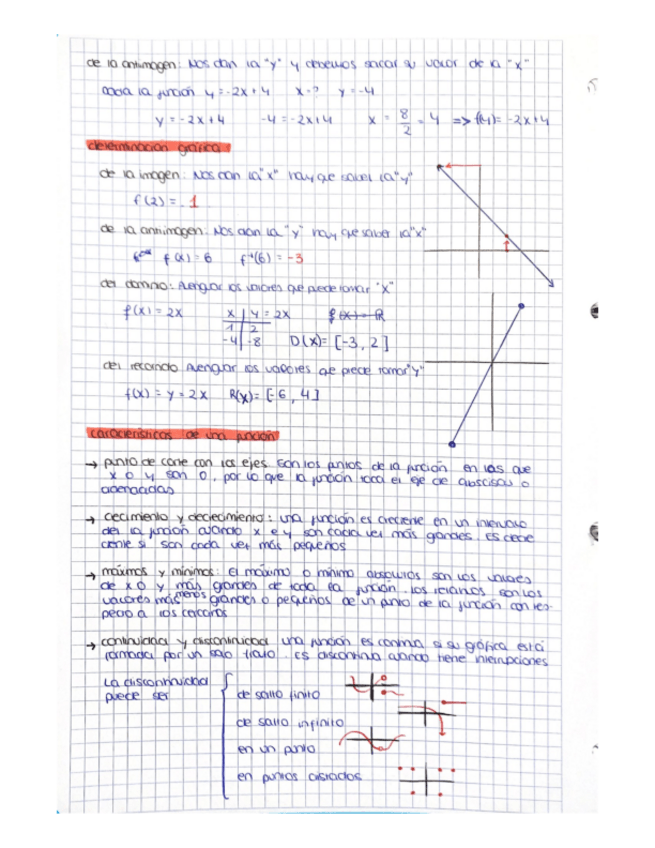 de la antimagen: Nos dan la "y" y debemos sacar su valor de la "x"
dada la función y = -2x + 4 x = ? y = -4
y = -2x + 4 -4 = -2x + 4 x = 8/2 = 4 => f(4) = -2x + 4
determinación gráfica:
de la imagen: Nos dan la "x" hay que saber la "y"
f(2) = 1
de la antimagen: Nos dan la "y" hay que saber la "x"
f(x) = 6 f⁻¹(6) = -3
del dominio: Averiguar los valores que puede tomar "x"
f(x) = 2x x | y = 2x f(x) = R
1 | 2
-4 | -8 D(x) = [-3, 2]
del recorrido Averiguar los valores que puede tomar "y"
f(x) = y = 2x R(x) = [-6, 4]
características de una función
→ punto de corte con los ejes. Son los puntos de la función en las que
x o y son 0, por lo que la función toca el eje de abscisas o
ordenadas
→ crecimiento y decrecimiento: una función es creciente en un intervalo
de la función cuando x e y son cada vez más grandes. Es decre
ciente si son cada vez más pequeños
→ máximos y mínimos: el máximo o mínimo absolutos son los valores
de x o y más grandes de toda la función. los relativos son los
valores más menos grandes o pequeños de un punto de la función con res-
pecto a los cercanos
→ continuidad y discontinuidad una función es continua si su gráfica está
formada por un solo trazo. es discontinua cuando tiene interrupciones
La discontinuidad
puede ser
de salto finito
de salto infinito
en un punto
en puntos aislados